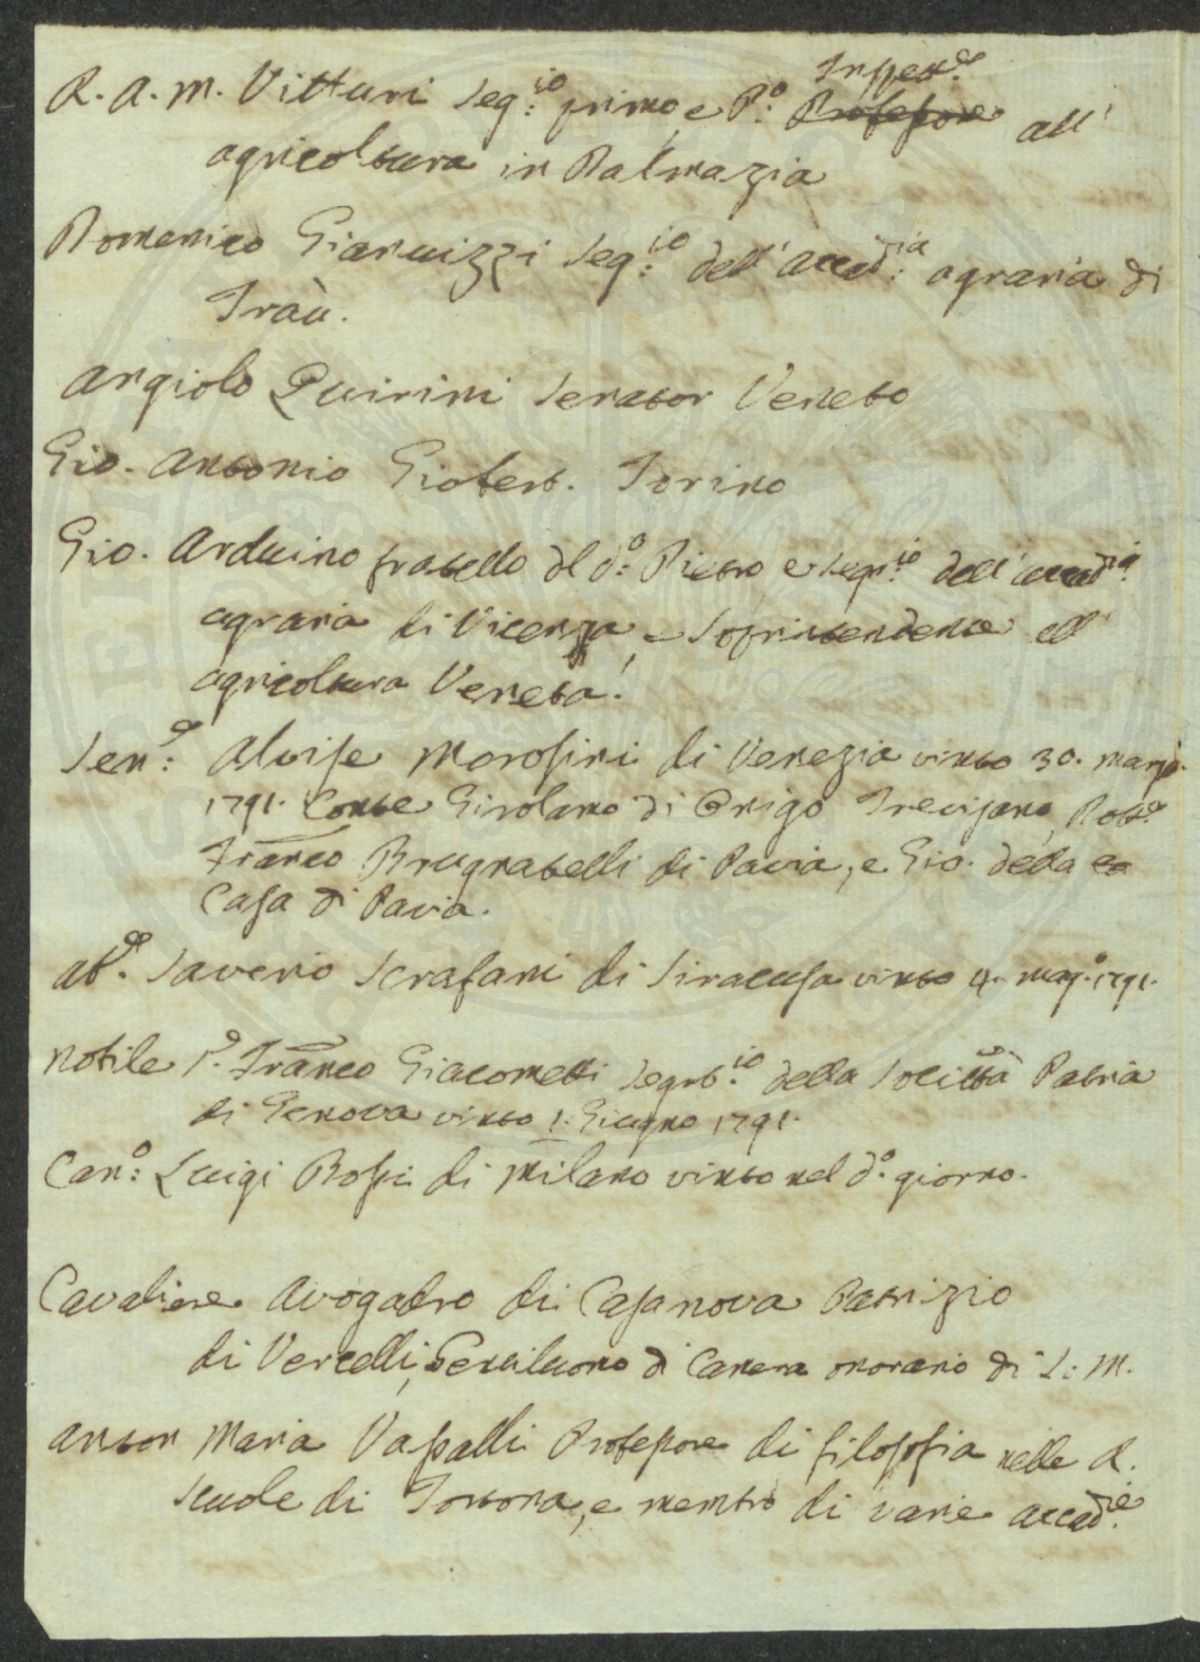 R. A. M. Vitturi Seg:io primo, e P:o Inspett:e Professore all'
agricoltura in Dalmazia
Domenico Gianuizzi Seg:io dell'accad:ia agraria di
Traù.
Angiolo Quirini Senator Veneto
Gio. Antonio Giobert. Torino
Gio. Arduino fratello del d:o Pietro e segr:io dell'accad:ia
agraria di Vicenza, e Soprintendente all'
agricoltura Veneta.
Sen:e Alvise Morosini di Venezia vinto 30. marzo
1791. Conte Girolamo di Onigo Trevisano, Dott:e
Franco Brugnatelli di Pavia, e Gio. della ca
Casa di Pavia.
ab:e Saverio Scrafani di Siracusa vinto 4. mag:o 1791.
Nobile S:e Franco Giacometti Segrt:io della Società Patria
di Genova vinto 1. Giugno 1791.
Can:o Luigi Bossi di Milano vinto nel d:o giorno.
Cavaliere Avogadro di Casanova Patrizio
di Vercelli, Gentiluomo di Camera onorario di S: M.
Anton Maria Vassalli Professore di filosofia nelle R.
Scuole di Tortona, e membro di varie accad:ie